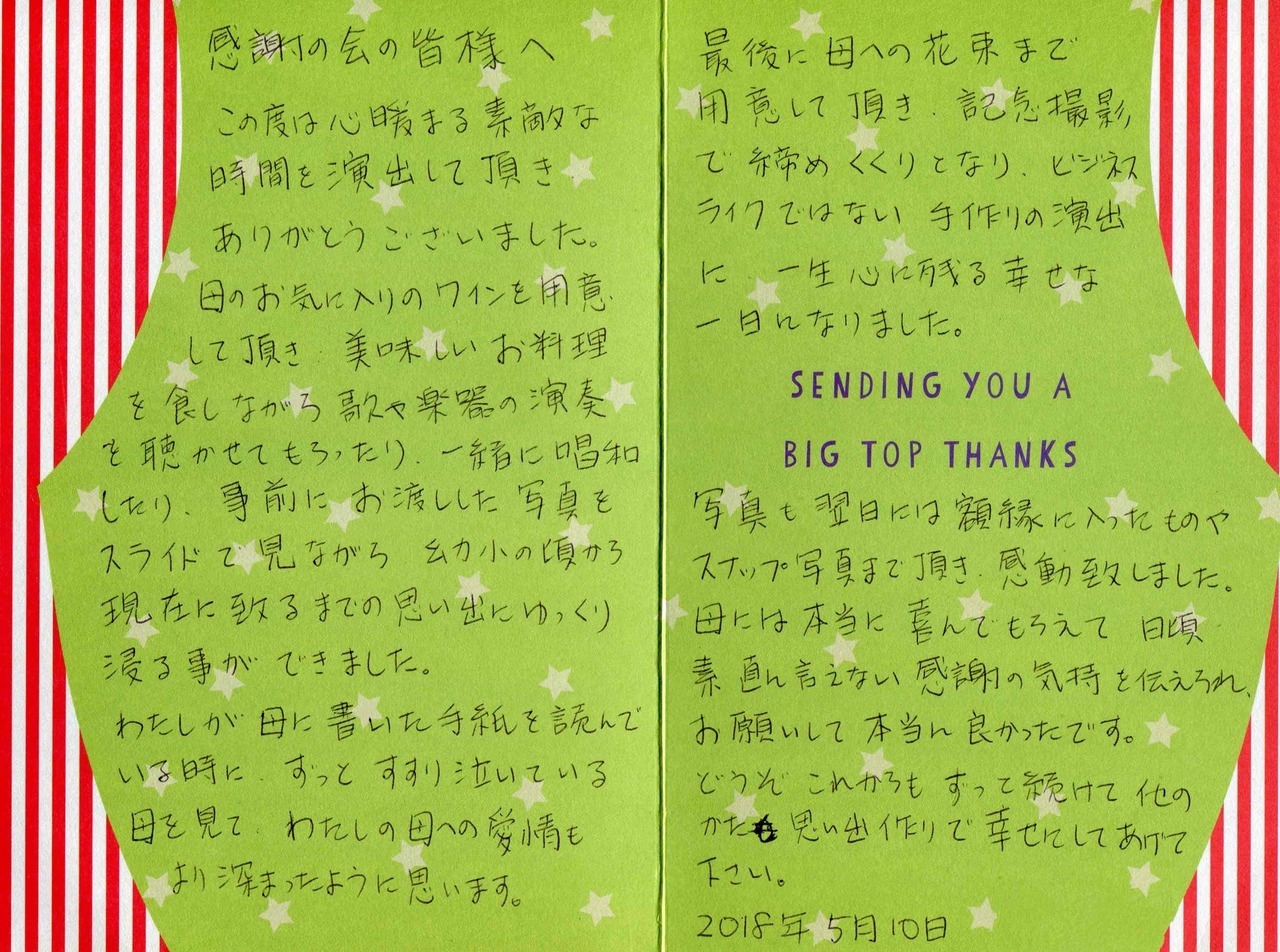 感謝の会の皆様へ
この度は心暖まる素敵な
時間を演出して頂き
ありがとうございました。
母のお気に入りのワインを用意
して頂き、美味しいお料理
を食しながら歌や楽器の演奏
を聴かせてもらったり、一緒に唱和
したり、事前にお渡しした写真を
スライドで見ながら幼少の頃から
現在に致るまでの思い出にゆっくり
浸る事ができました。
わたしが母に書いた手紙を読んで
いる時に、ずっとすすり泣いている
母を見て、わたしの母への愛情も
より深まったように思います。
最後に母への花束まで
用意して頂き、記念撮影
で締めくくりとなり、ビジネス
ライクではない手作りの演出
に、一生心に残る幸せな
一日になりました。
SENDING YOU A
BIG TOP THANKS
写真も翌日には額縁に入ったものや
スナップ写真まで頂き、感動致しました。
母には本当に喜んでもらえて日頃
素直に言えない感謝の気持を伝えられ、
お願いして本当に良かったです。
どうぞこれからもずって続けて他の
かたも思い出作りで幸せにしてあげて
下さい。
2018年5月10日